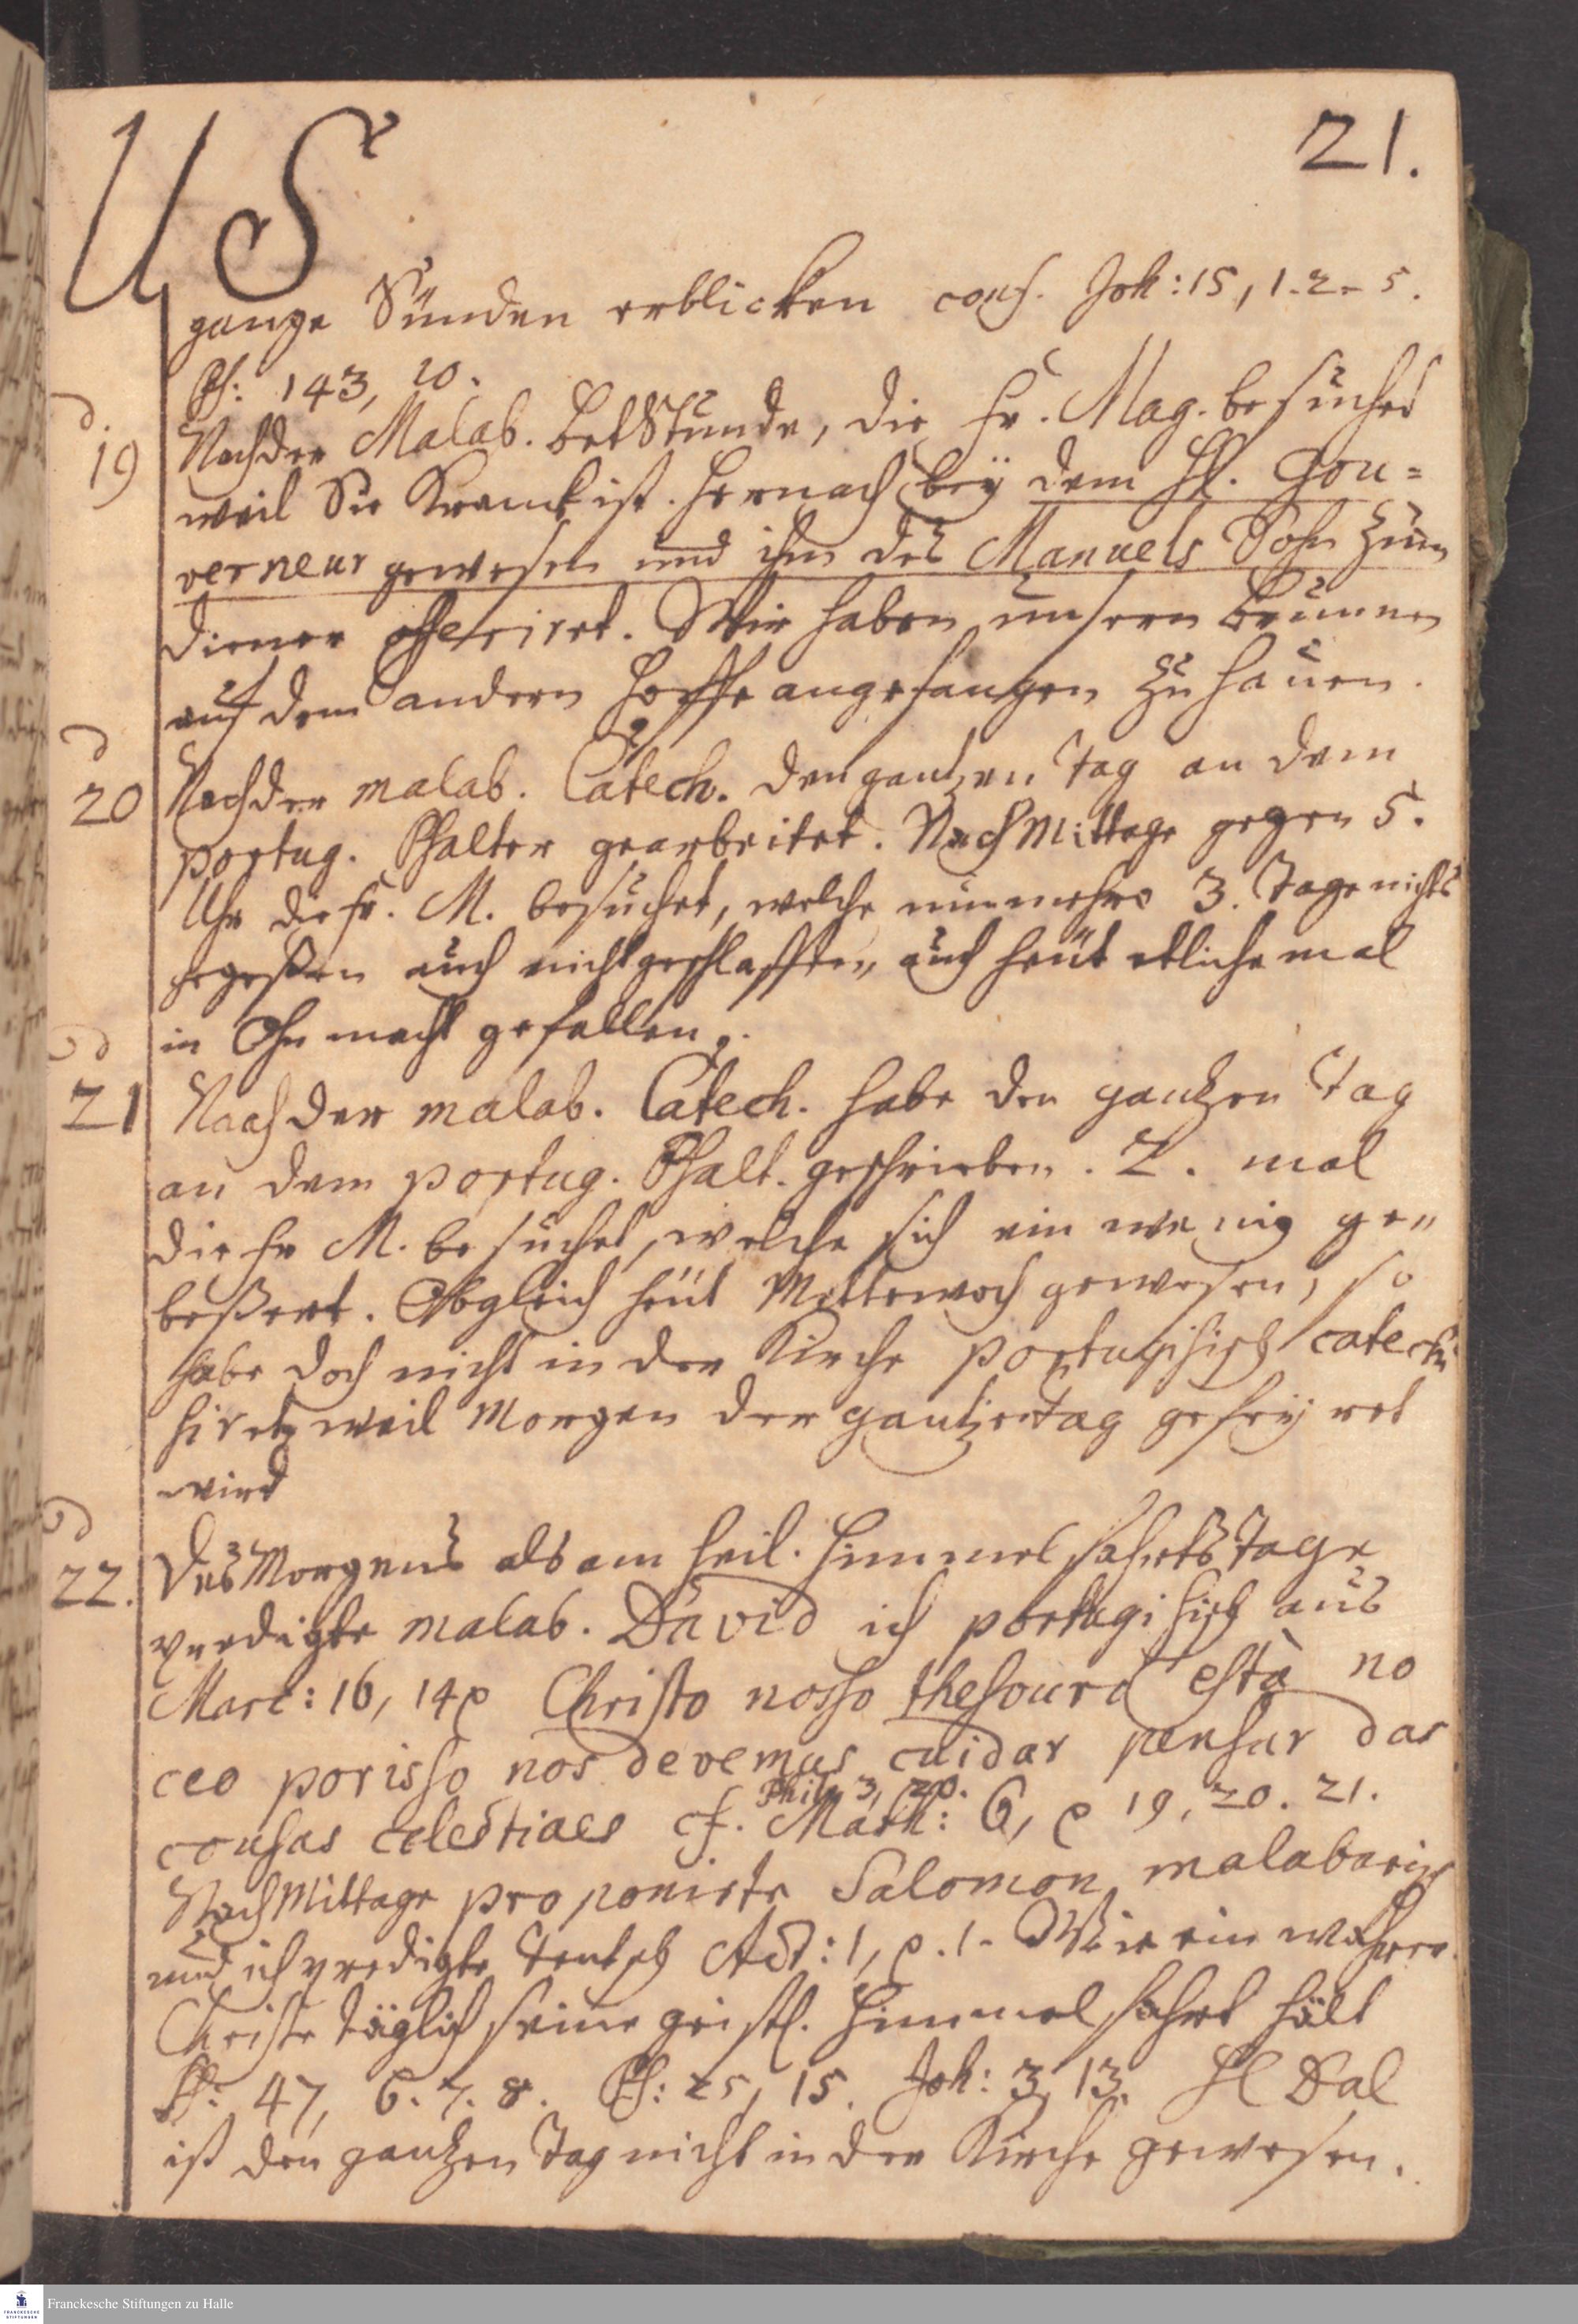 21.
U S
ganze Sünden erblicken conf. Joh: 15, 1.2-5.
Ps: 143, 10.
d. 19 Nach der Malab. Betstunde, die Fr. Mag. besuchet
weil Sie Kranck ist. Hernach bey dem H. Gou=
verneur gewesen und ihm des Manuels Sohn zum
diener offeriret. Wir haben unsern Brunnen
auf dem andern Hoffe angefangen zu hauen.
d 20 Nach der malab. Catech. den gantzen Tag an dem
portug. Psalter gearbeitet. NachMittage gegen 5.
Uhr die Fr. M. besuchet, welche nunmehro 3. Tage nichts
gegeßen auch nicht geschlaffen, auch heüt etliche mal
in Ohnmacht gefallen.
d 21 Nach der malab. Catech. habe den gantzen Tag
an dem portug. Psalt. geschrieben. 2. mal
die Fr M. besuchet, welche sich ein wenig ge=
beßert. Obgleich heüt Mittewoch gewesen, so
habe doch nicht in der Kirche portugisisch catechi
siret, weil Morgen der gantze Tag gefeyret
wird
d 22. Des Morgens als am heil. Himmelfahrts Tage
predigte malab. David ich portugisisch aus
Marc: 16, 14 Christo nosso thesouro està no
ceo porisso nos devemus cuidar pensar das
Phil: 3, 20.
cousas celestiaes cf. Matth: 6, 19. 20. 21.
NachMittage proponirte Salomon malabarisch
und ich predigte Teutsch Act: 1, 1- Wie ein wahrer
Christe täglich seine geistl. Himmelfahrt hält
Ps: 47, 6. 7. 8. Ps: 25, 15. Joh: 3, 13. H Dal
ist den gantzen Tag nicht in der Kirche gewesen.
FRANCKESCHE STIFTUNGEN
Franckesche Stiftungen zu Halle